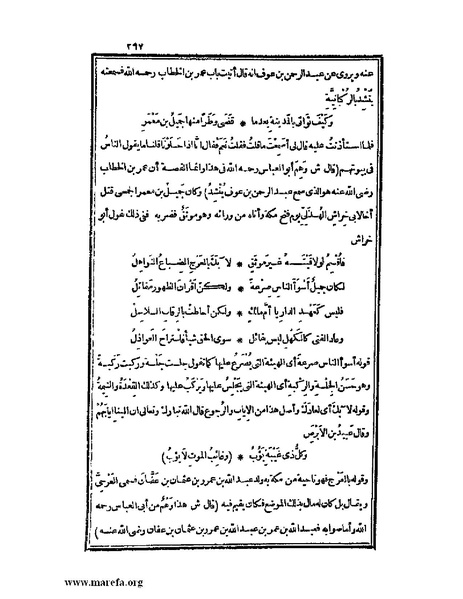 ٢٩٧
عنه ويروى عن عبد الرحمن بن عوف انه قال أتيت باب عمر بن الخطاب رحمه الله فسمعته
يُنْشِد بالرُّكْبانِيَّة
وكَيْفَ ثَوائى بالمدينةِ بعدما * قَضَى وطَرًا منها جَمِيلُ بنُ مَعْمَرِ
فلما استأذنتُ عليه قال لى أَسَمِعْتَ ما قلتُ فقلتُ نعم فقال إنّا اذا خَلَوْنا قلنا ما يقول الناسُ
فى بيوتهم (قال ش وَهِم أبو العباس رحمه الله فى هذا وانما القصة أن عمر بن الخطاب
رضى الله عنه هو الذى سمع عبد الرحمن بن عوف يُنْشِد) وكان جَميل بن معمر الجمحى قتل
أخا لابى خِراش الهُذَلىِّ يوم فتح مكة وأتاه من ورائه وهو موثَقٌ فضربه ففى ذلك يقول أبو
خراش
فأُقْسِمُ لو لاقَيْتَــهُ غــيرَ مُوثَقٍ * لآبَكَ بالعَرْجِ الضِباعُ النَّواهلُ
لكان جميلٌ أَسْوَأَ الناسِ صِرْعةً * ولكنّ أَقْرانَ الظهورِ مَقاتِلُ
فليس كَعَهْدِ الدارِ يا أُمَّ مالكٍ * ولكن أحاطتْ بالرِقابِ السلاسلُ
وعاد الفتى كالكهلِ ليس بقائلٍ * سوى الحقِ شيأ فاستراح العواذلُ
قوله أسوأ الناس صرعة أى الهيئة التى يُصْرَعُ عليها كما تقول جلست جَلْسة وركبت رَكْبة
وهو حَسَنُ الجِلْسةِ والرِكْبةِ أى الهيئة التى يَجْلِسُ عليها ويَرْكَبُ عليها وكذلك القِعْدةُ والنِيمةُ
وقوله لآبَكَ أى لعادَكَ وأصل هذا من الاِياب والرجوع قال الله تبارك وتعالى ان الينا ايابَهم
وقال عَبِيد بن الاَبْرَصِ
وكلُّ ذى غَيْبةٍ يَؤُوبُ * (وغائبُ الموتِ لا يَؤُبُ)
وقوله بالعَرْجِ فهو ناحية من مكة به ولد عبد الله بن عمرو بن عثمان بن عفّان فسمى العَرْجىَّ
ويقال بل كان له مال بذلك الموضع فكان يقيم فيه (قال ش هذا وَهْمٌ من أبى العباس رحمه
الله وأما صوابه فعبد الله بن عمر بن عبد الله بن عمرو بن عثمان بن عفان رضى الله عنه)
www.marefa.org